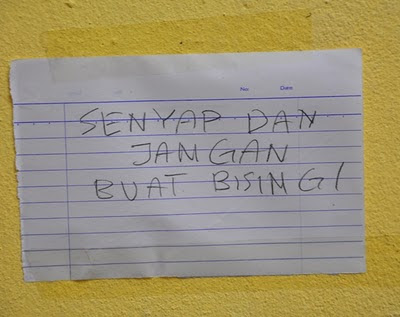 No: Date:
SENYAP DAN
JANGAN
BUAT BISING!